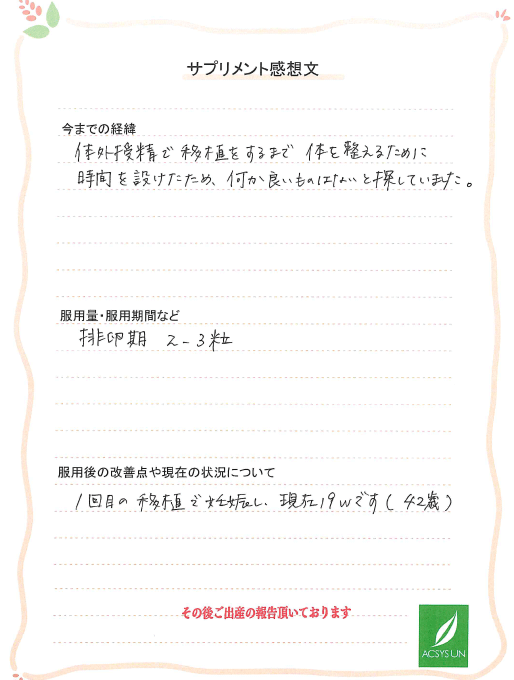 サプリメント感想文
今までの経緯
体外授精で移植をするまで 体を整えるために
時間を設けたため、何か良いものはないと探していました。
服用量・服用期間など
排卵期 2-3粒
服用後の改善点や現在の状況について
1回目の移植で妊娠し、現在19wです(42歳)
その後ご出産の報告頂いております
ACSYS UN